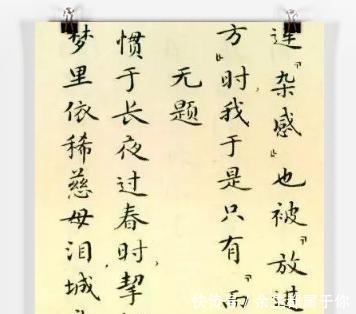 连『杂感』也被『放进
方』时，我于是只有『而
无题
惯于长夜过春时，挈
梦里依稀慈母泪，城